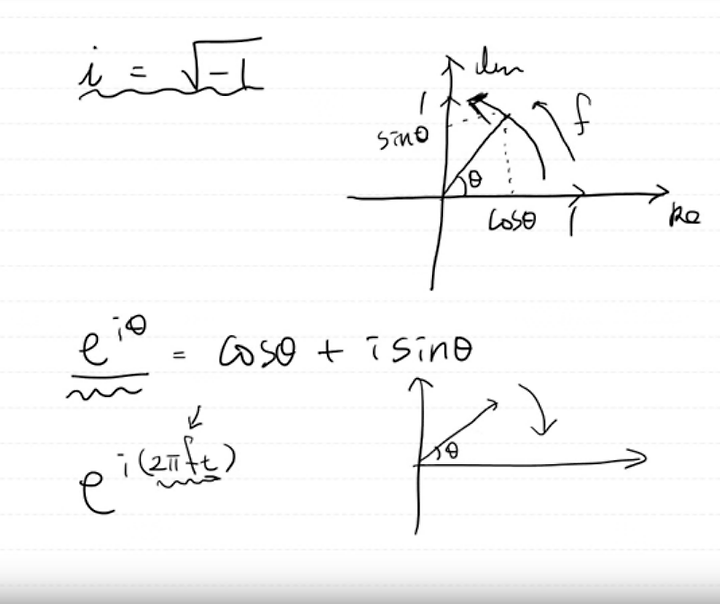 i = √-1
Im
1
f
sinθ
θ
cosθ
1
Re
e^{iθ} = cosθ + i sinθ
e^{i(2πft)}
θ